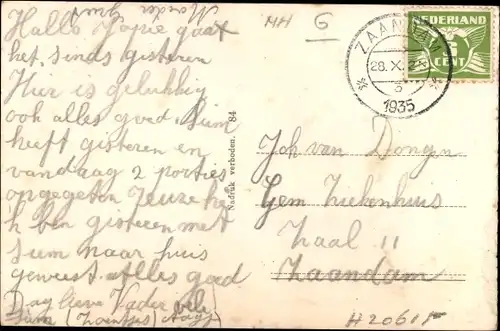 Moeder
Hallo Japie gaat
het sinds gisteren
Hier is gelukkig
ook alles goed Siem
heeft gisteren en
vandaag 2 porties
opgegeten
ik ben gisteren met
Siem naar huis
geweest alles goed
Dag lieve Vader
Siem
Nadruk verboden. 84
MH
G
ZAANDAM
28.X.
3
1935
NEDERLAND
CENT
Joh van Dongen
Gem Ziekenhuis
Zaal 11
Zaandam